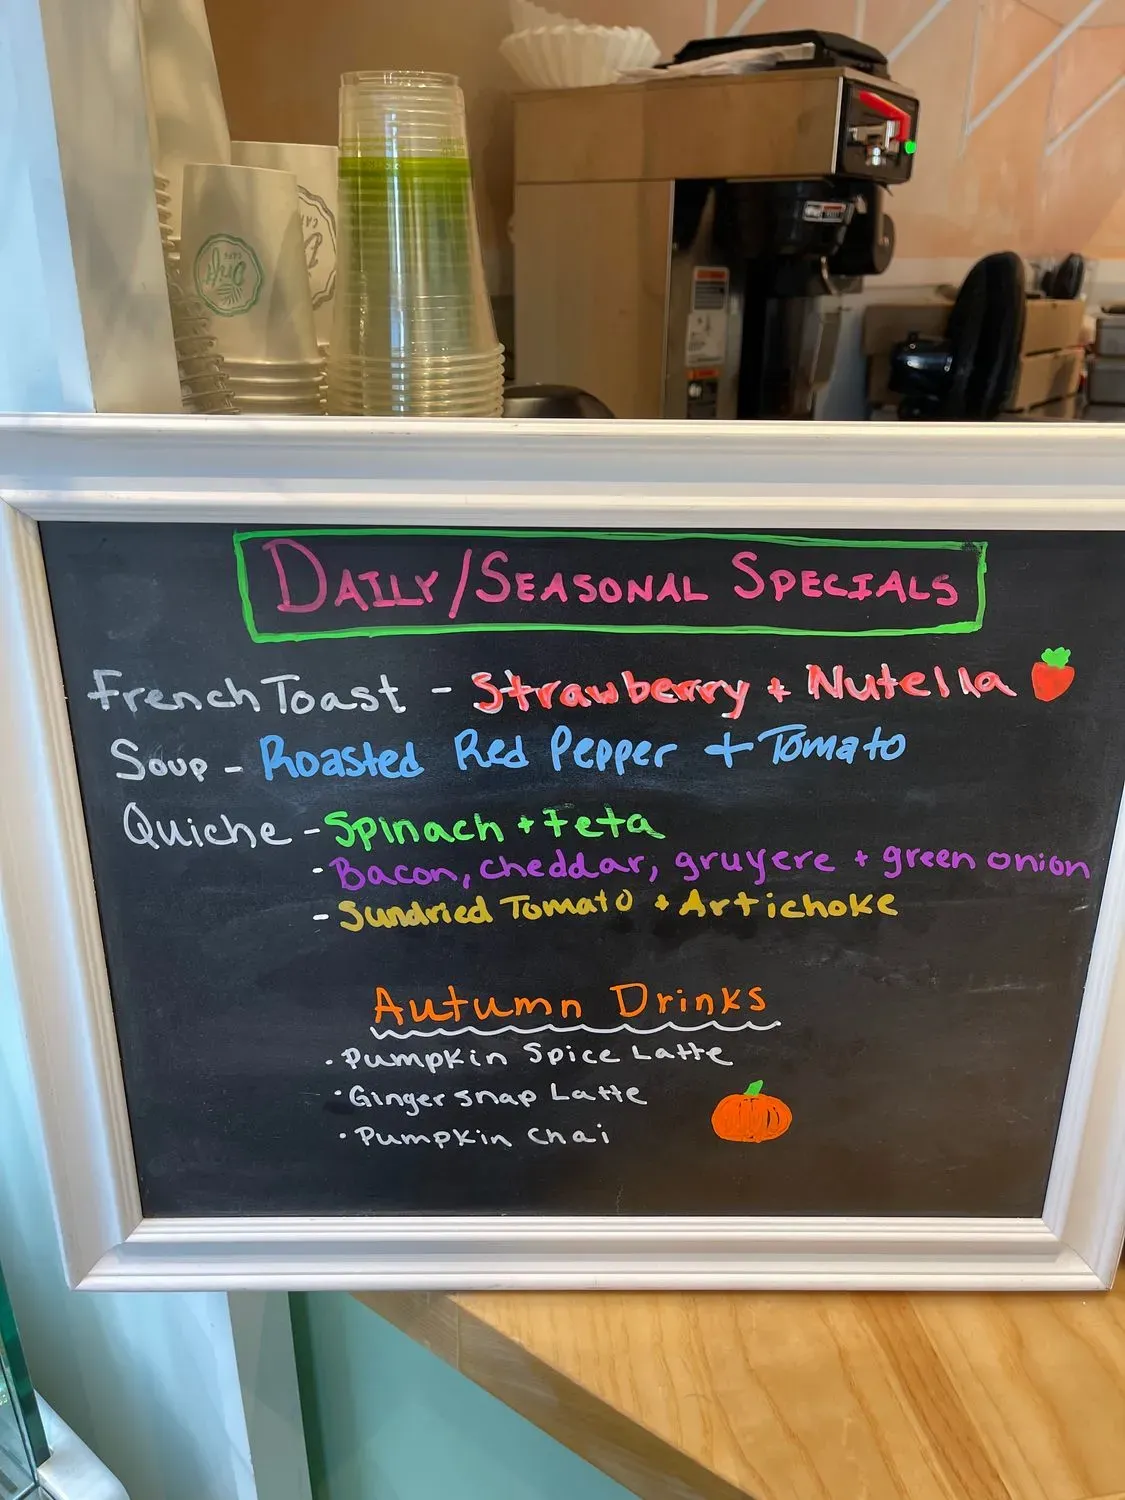 Drift
CAFE
DAILY/SEASONAL SPECIALS
French Toast - Strawberry + Nutella
Soup - Roasted Red Pepper + Tomato
Quiche - Spinach + Feta
- Bacon, cheddar, gruyere + green onion
- Sundried Tomato + Artichoke
Autumn Drinks
· Pumpkin Spice Latte
· Ginger snap Latte
· Pumpkin Chai